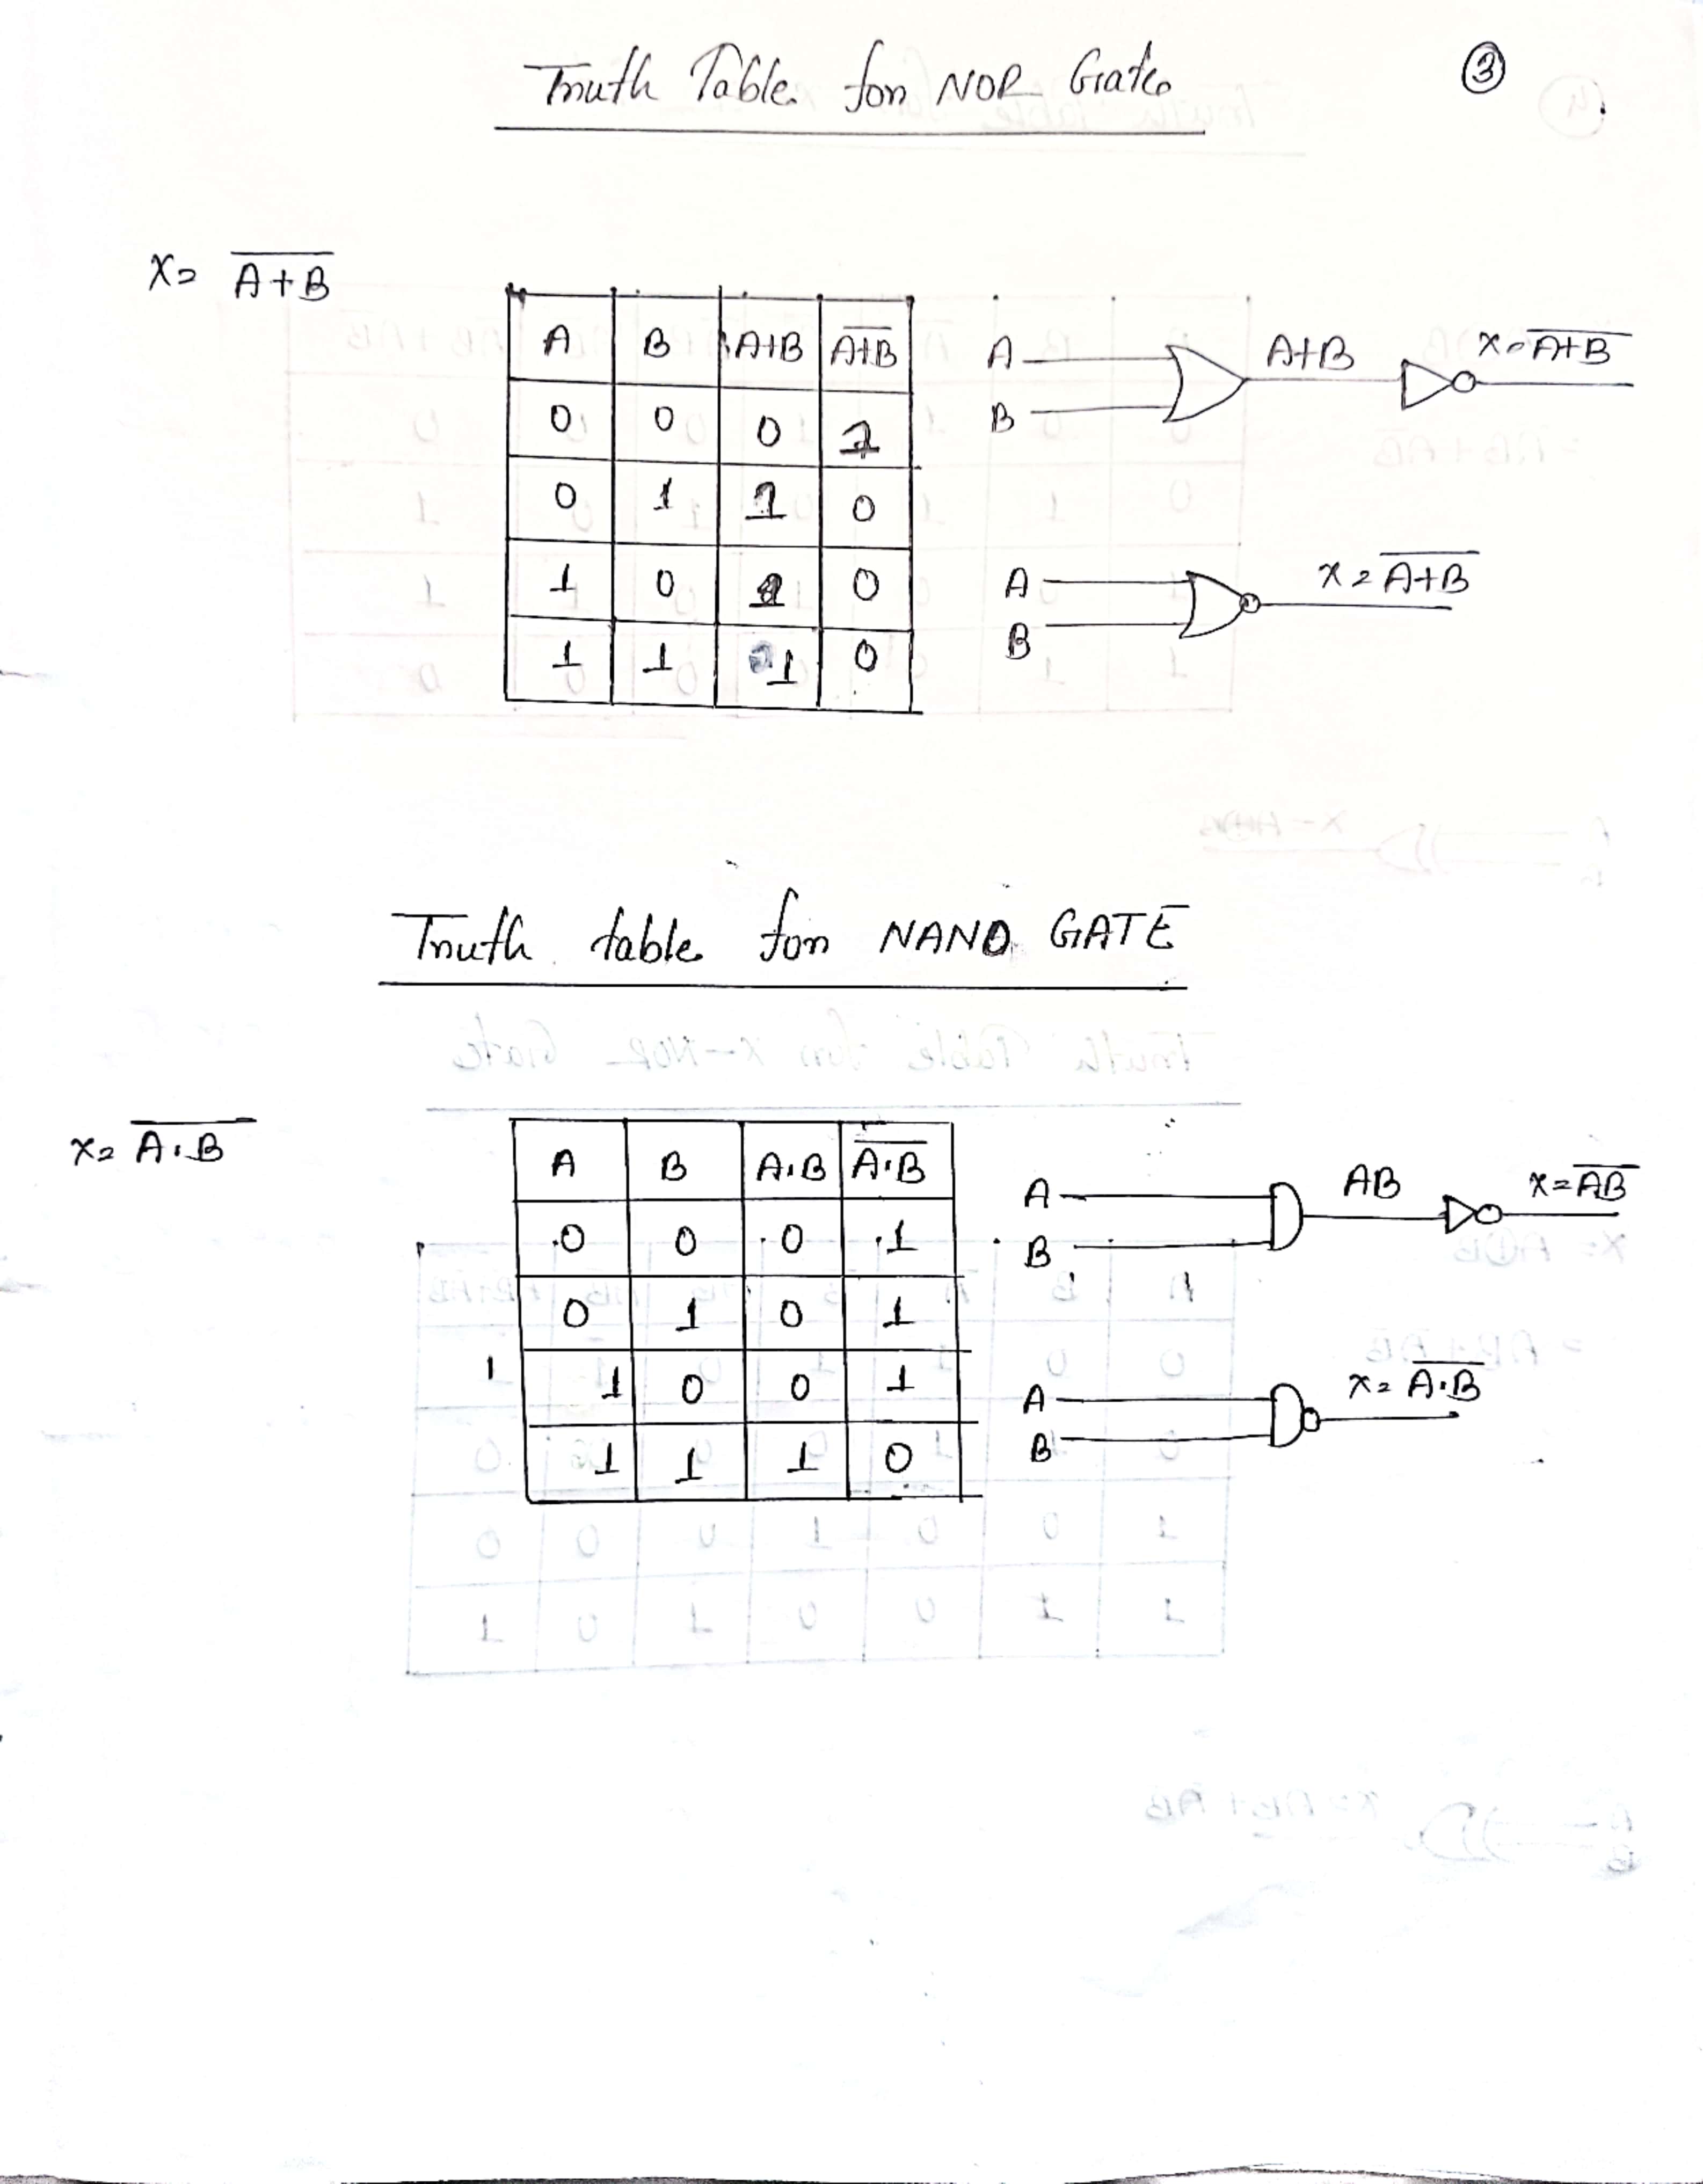 Truth Table for NOR Gate
③
X = A̅+̅B̅
A B A+B A̅+̅B̅
0 0 0 1
0 1 1 0
1 0 1 0
1 1 1 0
A
B
A+B
X = A̅+̅B̅
A
B
X = A̅+̅B̅
Truth table for NAND GATE
X = A̅.̅B̅
A B A.B A̅.̅B̅
0 0 0 1
0 1 0 1
1 0 0 1
1 1 1 0
A
B
AB
X = A̅B̅
A
B
X = A̅.̅B̅